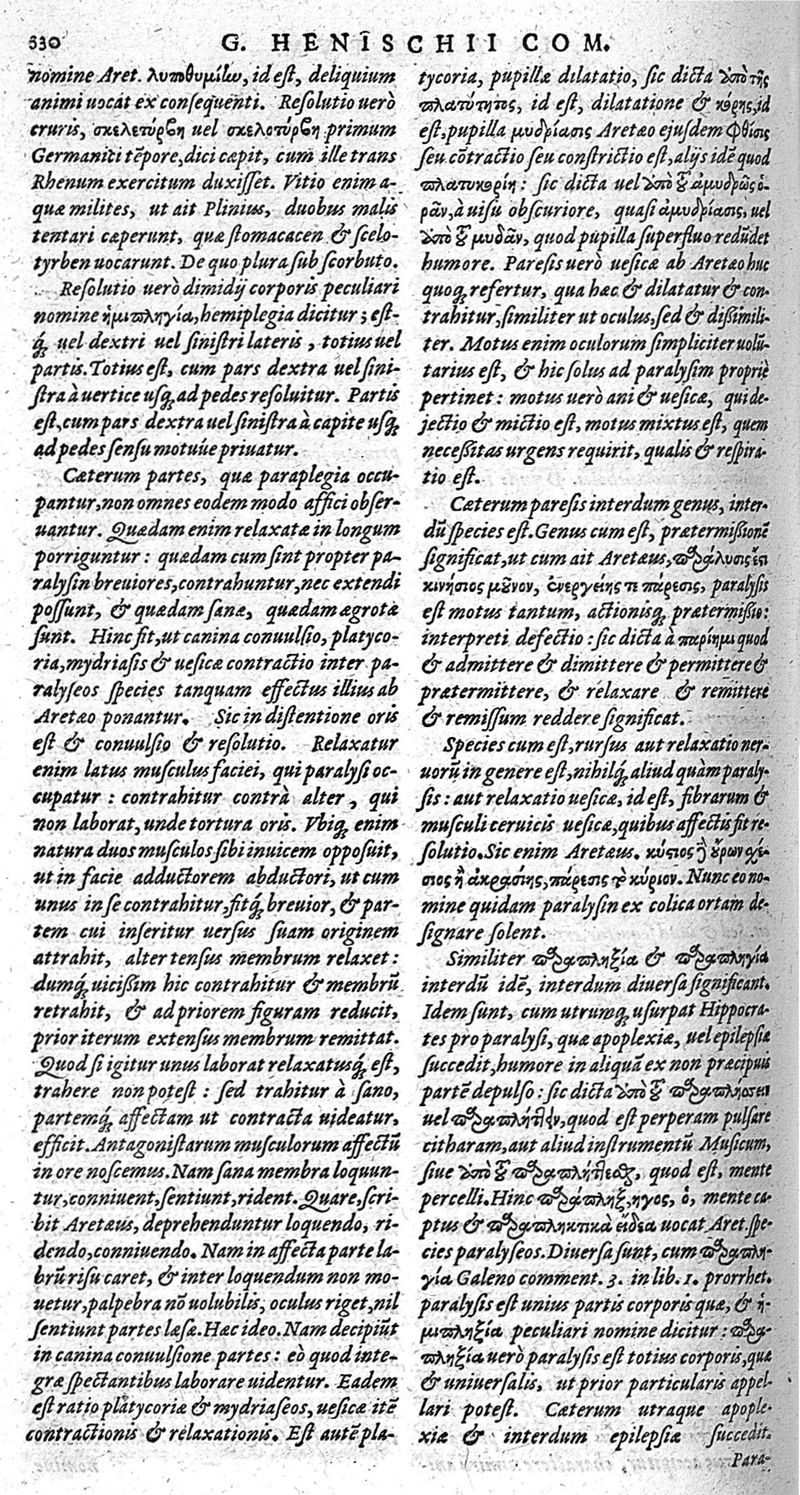 630
G. HENISCHII COM.
nomine Aret. λυποθυμίαν, id est, deliquium
animi uocat ex consequenti. Resolutio uerò
cruris, σκελετύρβη uel σκελοτύρβη primum
Germanici tẽpore, dici cæpit, cum ille trans
Rhenum exercitum duxisset. Vitio enim a-
quæ milites, ut ait Plinius, duobus malis
tentari cæperunt, quæ stomacacen & scelo-
tyrben uocarunt. De quo plura sub scorbuto.
Resolutio uerò dimidij corporis peculiari
nomine ἡμιπληγία, hemiplegia dicitur; est-
q́; uel dextri uel sinistri lateris, totius uel
partis. Totius est, cum pars dextra uel sini-
stra à uertice usq; ad pedes resoluitur. Partis
est, cum pars dextra uel sinistra à capite usq;
ad pedes sensu motuúe priuatur.
Cæterum partes, quæ paraplegia occu-
pantur, non omnes eodem modo affici obser-
uantur. Quædam enim relaxatæ in longum
porriguntur: quædam cum sint propter pa-
ralysin breuiores, contrahuntur, nec extendi
possunt, & quædam sanæ, quædam ægrotæ
sunt. Hinc fit, ut canina conuulsio, platyco-
ria, mydriasis & uesicæ contractio inter pa-
ralyseos species tanquam effectus illius ab
Aretæo ponantur. Sic in distentione oris
est & conuulsio & resolutio. Relaxatur
enim latus musculus faciei, qui paralysi oc-
cupatur: contrahitur contrà alter, qui
non laborat, unde tortura oris. Vbiq; enim
natura duos musculos sibi inuicem opposuit,
ut in facie adductorem abductori, ut cum
unus in se contrahitur, fitq́; breuior, & par-
tem cui inseritur uersus suam originem
attrahit, alter tensus membrum relaxet:
dumq́; uicissim hic contrahitur & membrũ
retrahit, & ad priorem figuram reducit,
prior iterum extensus membrum remittat.
Quod si igitur unus laborat relaxatusq́; est,
trahere non potest: sed trahitur à sano,
partemq́; affectam ut contracta uideatur,
efficit. Antagonistarum musculorum affectũ
in ore noscemus. Nam sana membra loquun-
tur, conniuent, sentiunt, rident. Quare, scri-
bit Aretæus, deprehenduntur loquendo, ri-
dendo, conniuendo. Nam in affecta parte la-
brũ risu caret, & inter loquendum non mo-
uetur, palpebra nõ uolubilis, oculus riget, nil
sentiunt partes læsæ. Hæc ideo. Nam decipiũt
in canina conuulsione partes: eò quod inte-
græ spectantibus laborare uidentur. Eadem
est ratio platycoriæ & mydriaseos, uesicæ itẽ
contractionis & relaxationis. Est autẽ pla-
tycoria, pupillæ dilatatio, sic dicta ὑπὸ τῆς
πλατύτητος, id est, dilatatione & κόρης, id
est, pupilla μυδρίασις Aretæo ejusdem φθίσις
seu cõtractio seu constrictio est, alijs idẽ quod
πλατυκορίη: sic dicta uel ὑπὸ τοῦ ἀμυδρῶς ὁ-
ρᾶν, à uisu obscuriore, quasi ἀμυδρίασις, uel
ὑπὸ τοῦ μυδᾶν, quod pupilla superfluo redũdet
humore. Paresis uerò uesicæ ab Aretæo huc
quoq; refertur, qua hæc & dilatatur & con-
trahitur, similiter ut oculus, sed & dissimili-
ter. Motus enim oculorum simpliciter uolũ-
tarius est, & hic solus ad paralysim propriè
pertinet: motus uerò ani & uesicæ, qui de-
jectio & mictio est, motus mixtus est, quem
necessitas urgens requirit, qualis & respira-
tio est.
Cæterum paresis interdum genus, inter-
dũ species est. Genus cum est, prætermissionẽ
significat, ut cum ait Aretæus, παράλυσις ἔτι
κινήσιος μοῦνον, ἐνεργείης τε πάρεσις, paralysis
est motus tantum, actionisq; prætermissio:
interpreti defectio: sic dicta à παρίημι quod
& admittere & dimittere & permittere &
prætermittere, & relaxare & remittere
& remissum reddere significat.
Species cum est, rursus aut relaxatio ner-
uorũ in genere est, nihilq́; aliud quàm paraly-
sis: aut relaxatio uesicæ, id est, fibrarum &
musculi ceruicis uesicæ, quibus affectis fit re-
solutio. Sic enim Aretæus. κύστιος ἢ οὔρων χέ-
σιος ἢ ἀκρασίης, πάρεσις τὸ κύριον. Nunc eo no-
mine quidam paralysin ex colica ortam de-
signare solent.
Similiter παραπληξία & παραπληγία
interdũ idẽ, interdum diuersa significant.
Idem sunt, cum utrumq; usurpat Hippocra-
tes pro paralysi, quæ apoplexiæ, uel epilepsiæ
succedit, humore in aliquã ex non præcipuis
partẽ depulso: sic dicta ὑπὸ τοῦ παραπλήσσειν
uel παραπλήττειν, quod est perperam pulsare
citharam, aut aliud instrumentũ Musicum,
siue ὑπὸ τοῦ παραπλήττεσθαι, quod est, mente
percelli. Hinc παράπληξ, ηγος, ὁ, mente ca-
ptus & παραπληκτικὰ εἴδεα uocat Aret. spe-
cies paralyseos. Diuersa sunt, cum παραπλη-
γία Galeno comment. 3. in lib. 1. prorrhet.
paralysis est unius partis corporis quæ, & ἡ-
μιπληξία peculiari nomine dicitur: παρα-
πληξία uerò paralysis est totius corporis, quæ
& uniuersalis, ut prior particularis appel-
lari potest. Cæterum utraque apople-
xiæ & interdum epilepsiæ succedit.
Para-